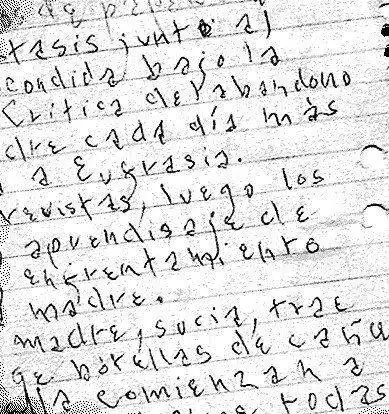 de pape
tasis junto al
condida bajo la
Critica del abandono
dre cada día más
a Eufrasia.
revistas, luego los
aprendisaje de
enfrentamiento
madre.
madre, sucia, trae
ge botellas de caña
la comienzan a
todas